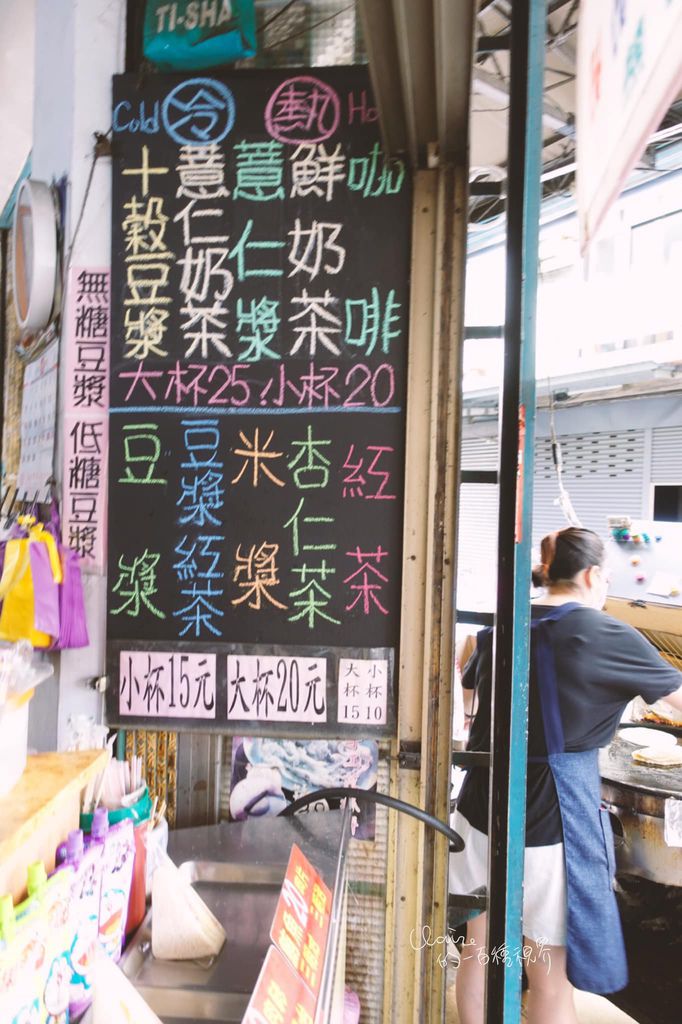 TI-SHA
Cold 冷 熱 Ho
咖啡
鮮奶茶
薏仁漿
薏仁奶茶
十穀豆漿
大杯25.小杯20
紅茶
杏仁茶
米漿
豆漿紅茶
豆漿
無糖豆漿
低糖豆漿
小杯15元
大杯20元
小杯10
大杯15
Claire
的一百種視界